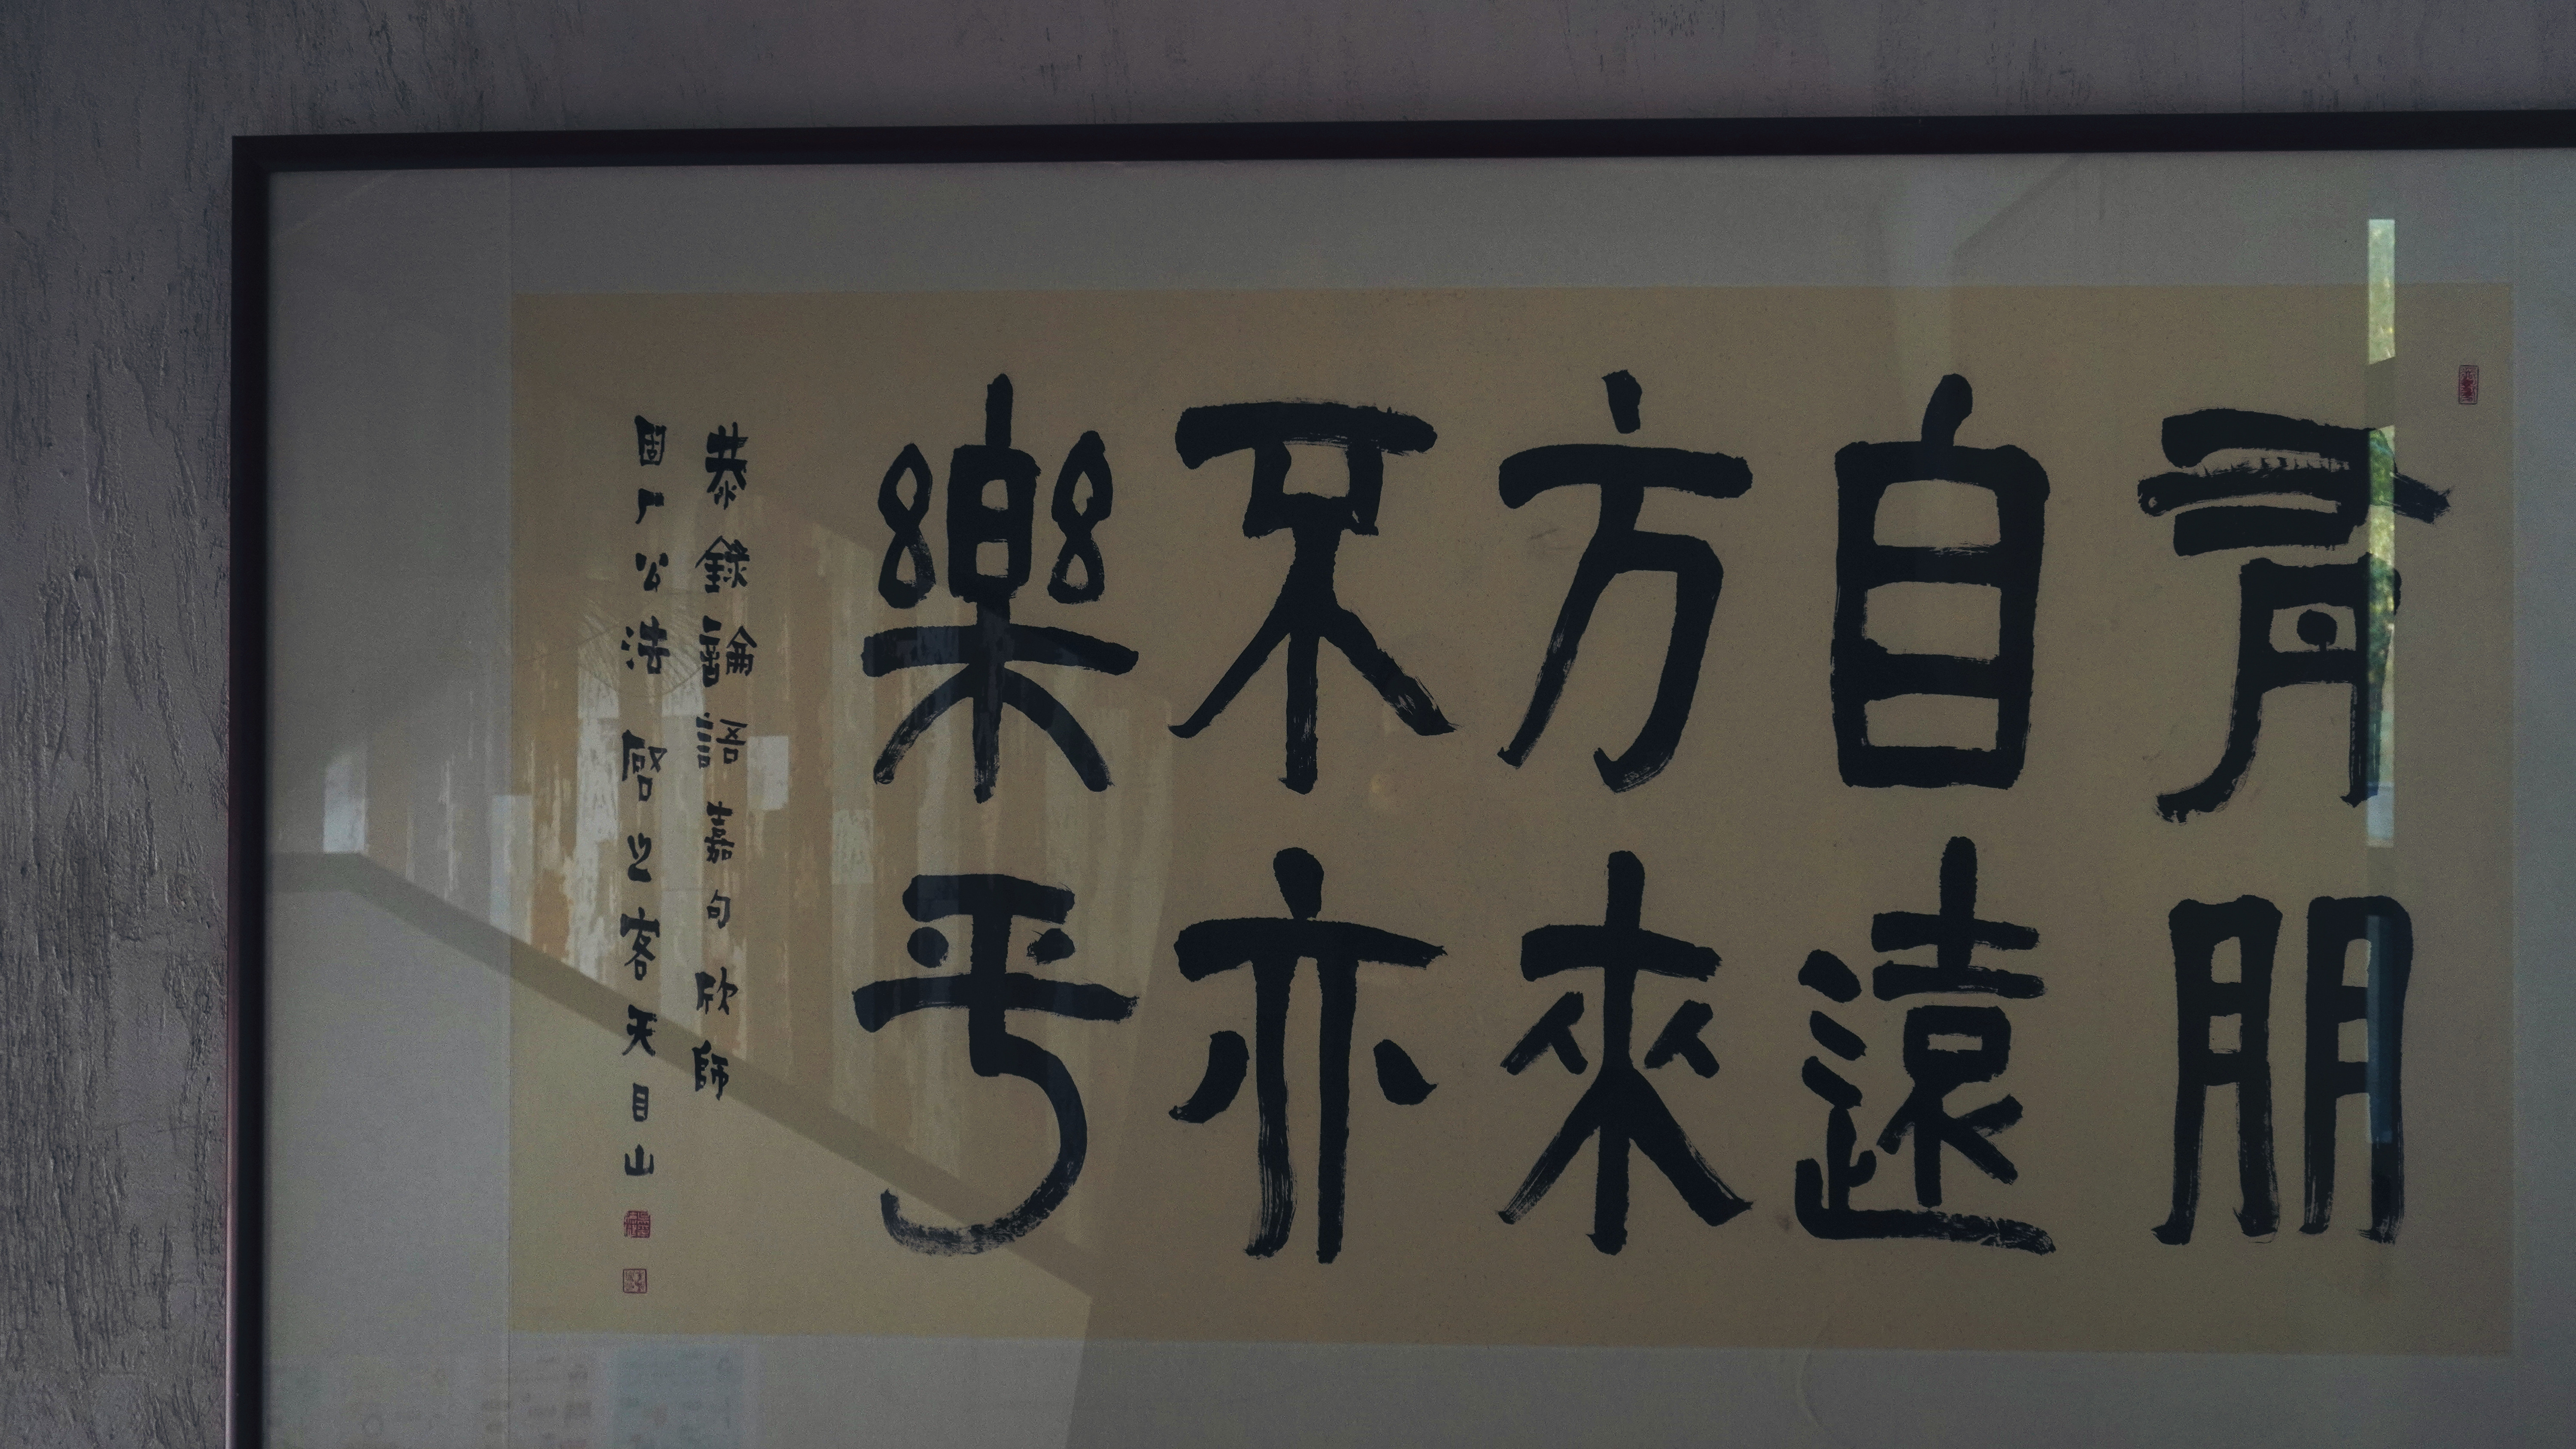 有朋
自遠
方來
不亦
樂乎
恭錄論語嘉句欣師
固廠公法啓之客天目山